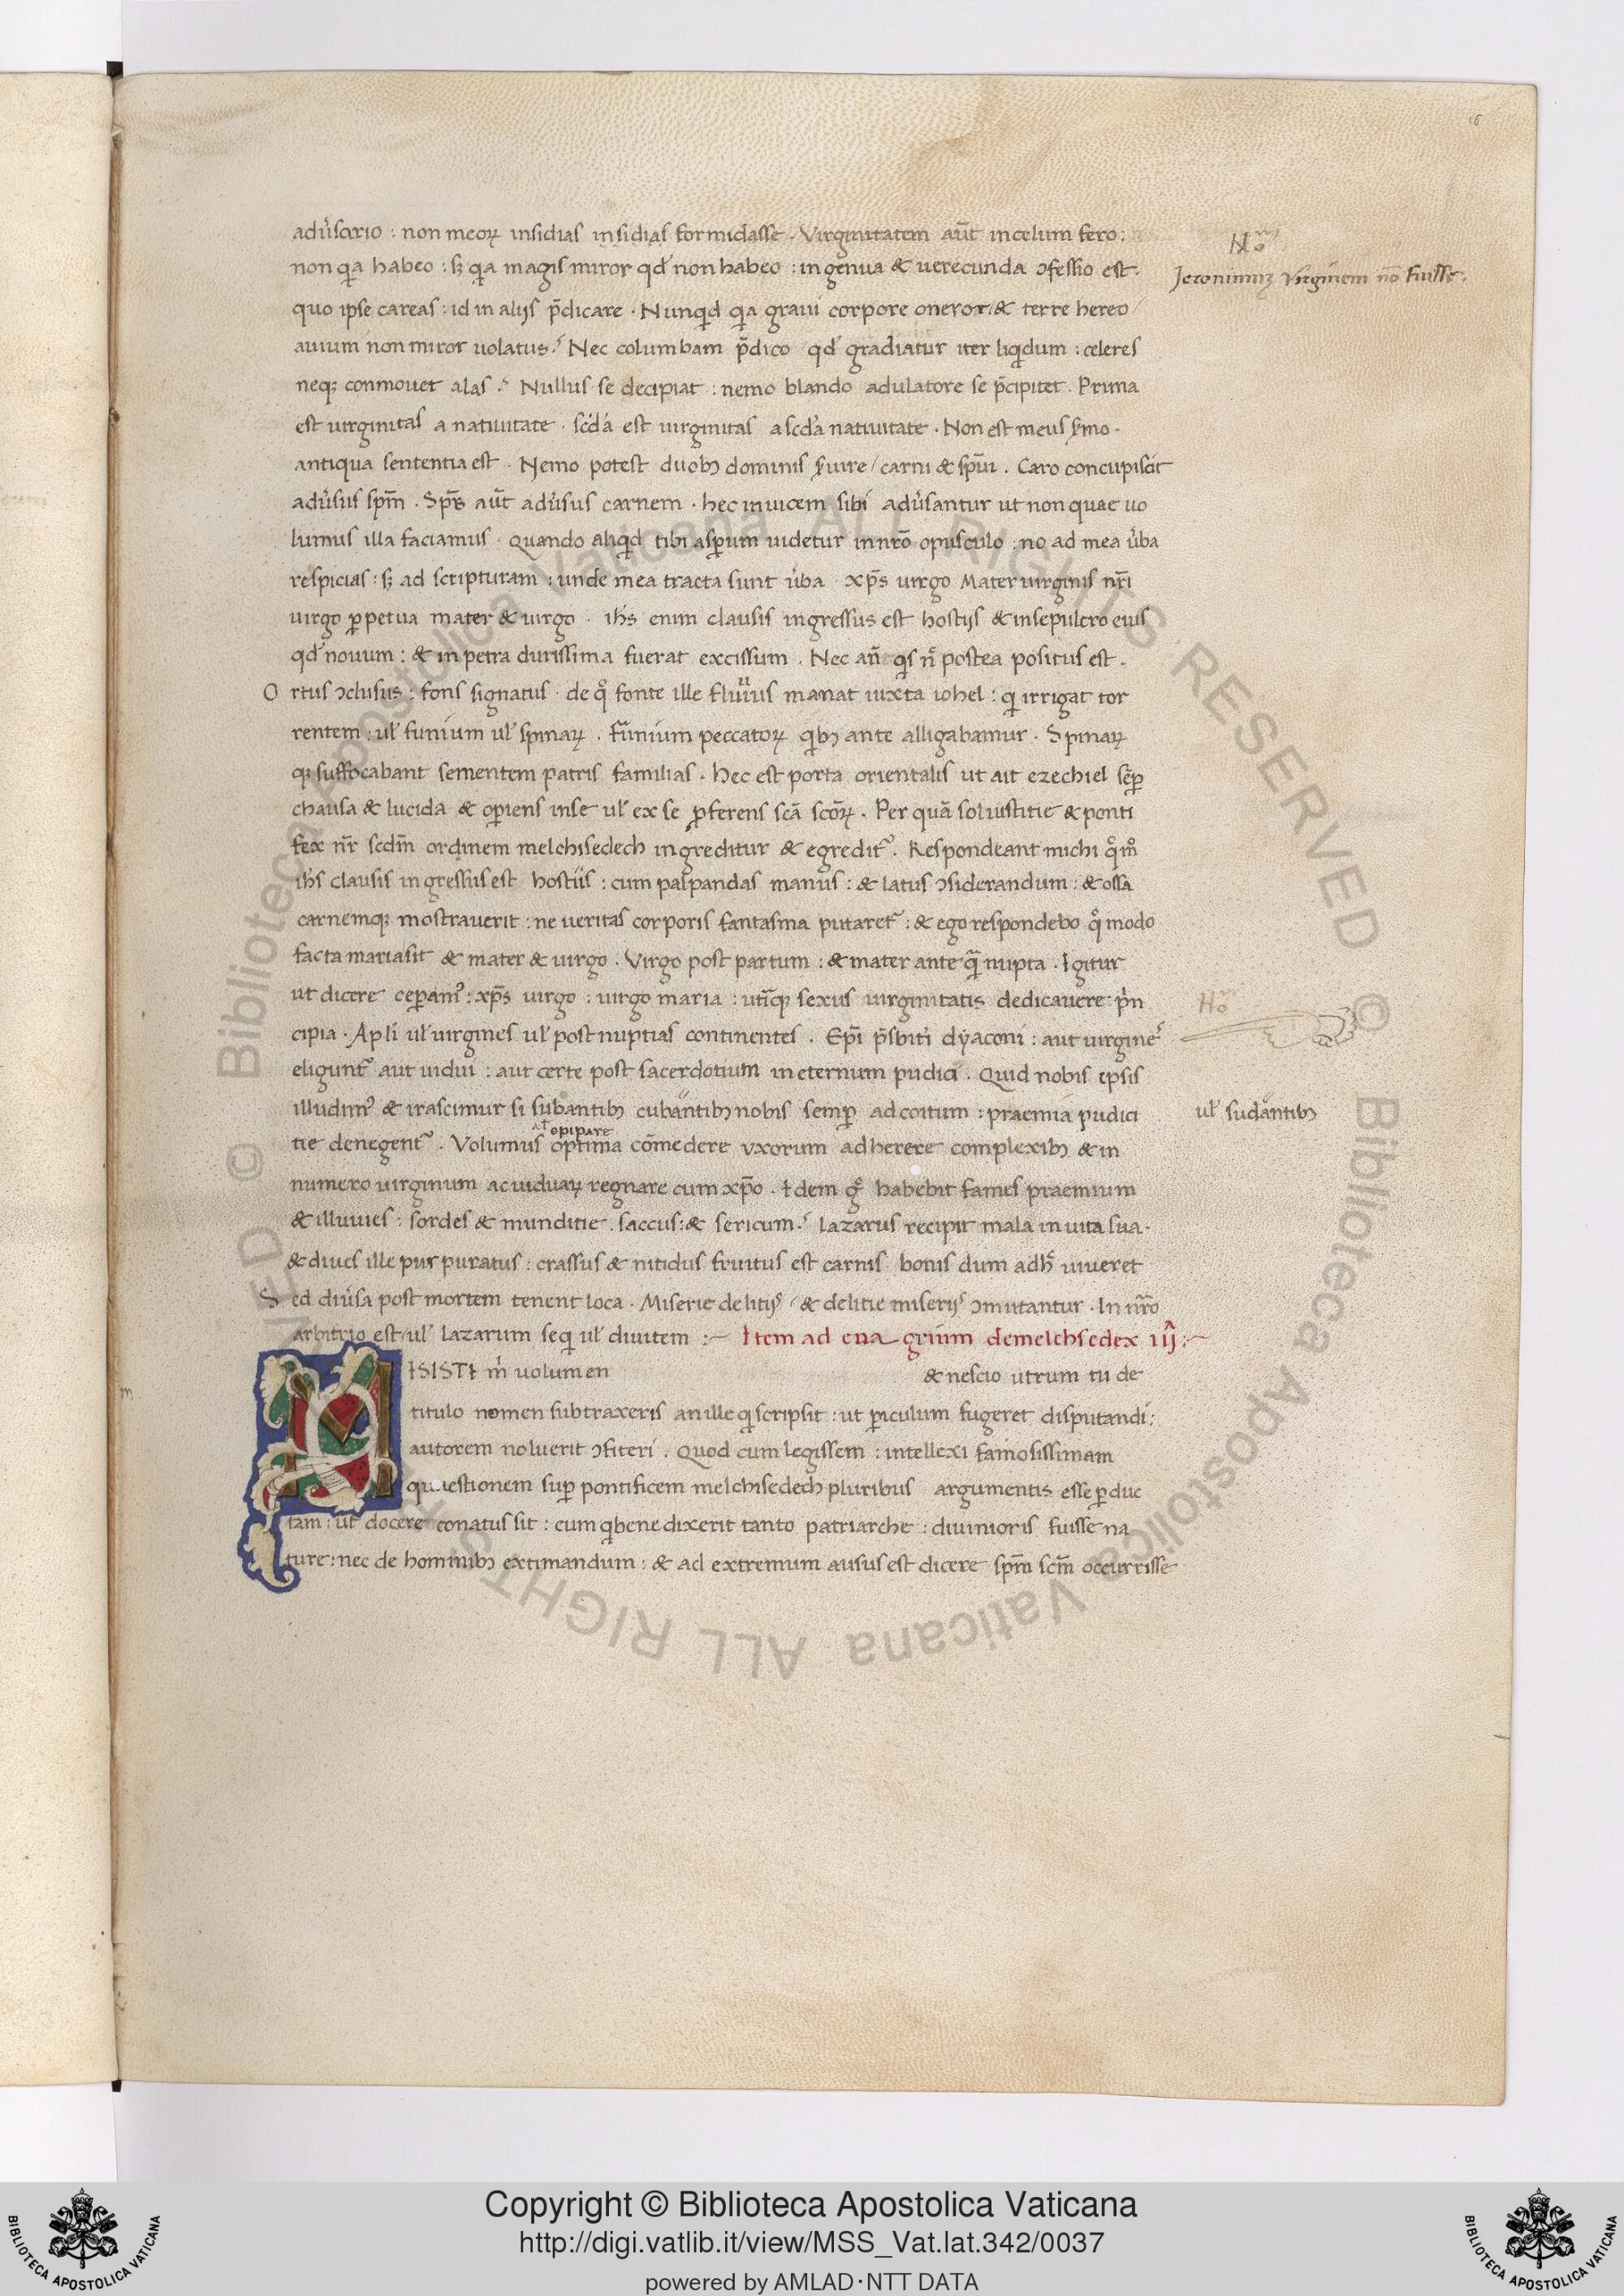 16
adu̓sario : non meoꝝ insidias insidias formidasse . Virginitatem aut̄ in celum fero :
Nō
non qa habeo : sꝫ qa magis miror qd̓ non habeo : ingenua & uerecunda ɔfessio est .
Jeronimuꝫ Virginem nō fuisse .
quo ipse careas : id in alijs p̄dicare . Nunqd qa graui corpore oneror / & terre hereo /
auium non miror uolatus ? Nec columbam p̄dico qd̓ gradiatur iter liqdum : celeres
neqꝫ conmouet alas ? Nullus se decipiat : nemo blando adulatore se p̄cipitet . Prima
est uirginitas a natiuitate . scd̓a est uirginitas a scd̓a natiuitate . Non est meus s̓mo .
antiqua sententia est . Nemo potest duobꝫ dominis s̓uire / carni & spūi . Caro concupiscit
adu̓sus spm̄ . Spr̄s aut̄ adu̓sus carnem . hec inuicem sibi adu̓santur ut non quae uo
lumus illa faciamus . Quando aliqd tibi asꝑum uidetur in nr̄o opusculo : no ad mea u̓ba
respicias : sꝫ ad scripturam : unde mea tracta sunt u̓ba . xp̄s uirgo Mater uirginis nr̄i
uirgo ꝑpetua mater & uirgo . ih̄s enim clausis ingressus est hostijs & in sepulcro eius
qd̓ nouum : & in petra durissima fuerat excissum . Nec an̄ qs n̄ postea positus est .
O rtus ɔclusus : fons signatus . de q̊ fonte ille fluuius manat iuxta iohel : q irrigat tor
rentem : ul̓ funium ul̓ spinaꝝ . Funium peccatoꝝ qbꝫ ante alligabamur . Spinaꝝ
qꝫ suffocabant sementem patris familias . hec est porta orientalis ut ait ezechiel sēꝑ
chausa & lucida & oꝑiens in se ul̓ ex se ꝓferens scā scōꝝ . Per quā sol iustitie & ponti
fex nr̄ scdm̄ ordinem melchisedech ingreditur & egredit᷑ . Respondeant michi q̊m̊
ih̄s clausis ingressus est hostiis : cum palpandas manus : & latus ɔsiderandum : & ossa
carnemqꝫ mostrauerit : ne ueritas corporis fantasma putaret᷑ : & ego respondebo q̊ modo
facta maria sit & mater & uirgo . Virgo post partum : & mater ante qᷓ nupta . Igitur
ut dicere ceꝑam᷒ : xp̄s uirgo : uirgo maria : utͥqꝫ sexus uirginitatis dedicauere pͥn
Nō
cipia . Apl̓i ul̓ uirgines ul̓ post nuptias continentes . Ep̄i p̄sbit̓i dyaconi : aut uirgine᷒
eligunt᷑ aut uidui : aut certe post sacerdotium in eternum pudici . Quid nobis ipsis
illudim᷒ & irascimur si subantibꝫ cubantibꝫ nobis semꝑ ad coitum : praemia pudici
ul̓ sudantibꝫ
al̓ opipare
tie denegent᷑ . Volumus optima cōmedere uxorum adherere complexibꝫ & in
numero uirginum ac uiduaꝝ regnare cum xp̄o . Idem g̊ habebit fames praemium
& illuuies : sordes & munditie . saccus : & sericum ? lazarus recipit mala in uita sua .
& diues ille purpuratus : crassus & nitidus fruitus est carnis bonis dum adh̓ uiueret
S ed diu̓sa post mortem tenent loca . Miserie delitijs / & delitie miserijs ɔmutantur . In nr̄o
arbitrio est / ul̓ lazarum seq ul̓ diuitem :~ Item ad euagrium de melchsedex iij :~
m
ISISTI m̓ uolumen & nescio utrum tu de
titulo nomen subtraxeris an ille q scripsit : ut ꝑiculum fugeret disputandi :
autorem noluerit ɔfiteri . Quod cum legissem : intellexi famosissimam
quaestionem suꝑ pontificem melchsedech pluribus argumentis esse ꝑduc
tam : ut docere conatus sit : cum q benedixerit tanto patriarche : diuinioris fuisse na
ture : nec de hominibꝫ extimandum : & ad extremum ausus est dicere spm̄ scm̄ occurrisse
Copyright © Biblioteca Apostolica Vaticana
http://digi.vatlib.it/view/MSS_Vat.lat.342/0037
powered by AMLAD·NTT DATA
BIBLIOTECA APOSTOLICA VATICANA
BIBLIOTECA APOSTOLICA VATICANA
© Biblioteca Apostolica Vaticana ALL RIGHTS RESERVED
© Biblioteca Apostolica Vaticana ALL RIGHTS RESERVED